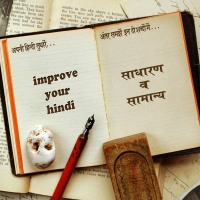 अपनी हिन्दी सुधारें...
improve
your
hindi
अंतर समझें इन दो शब्दों में...
साधारण
व
सामान्य